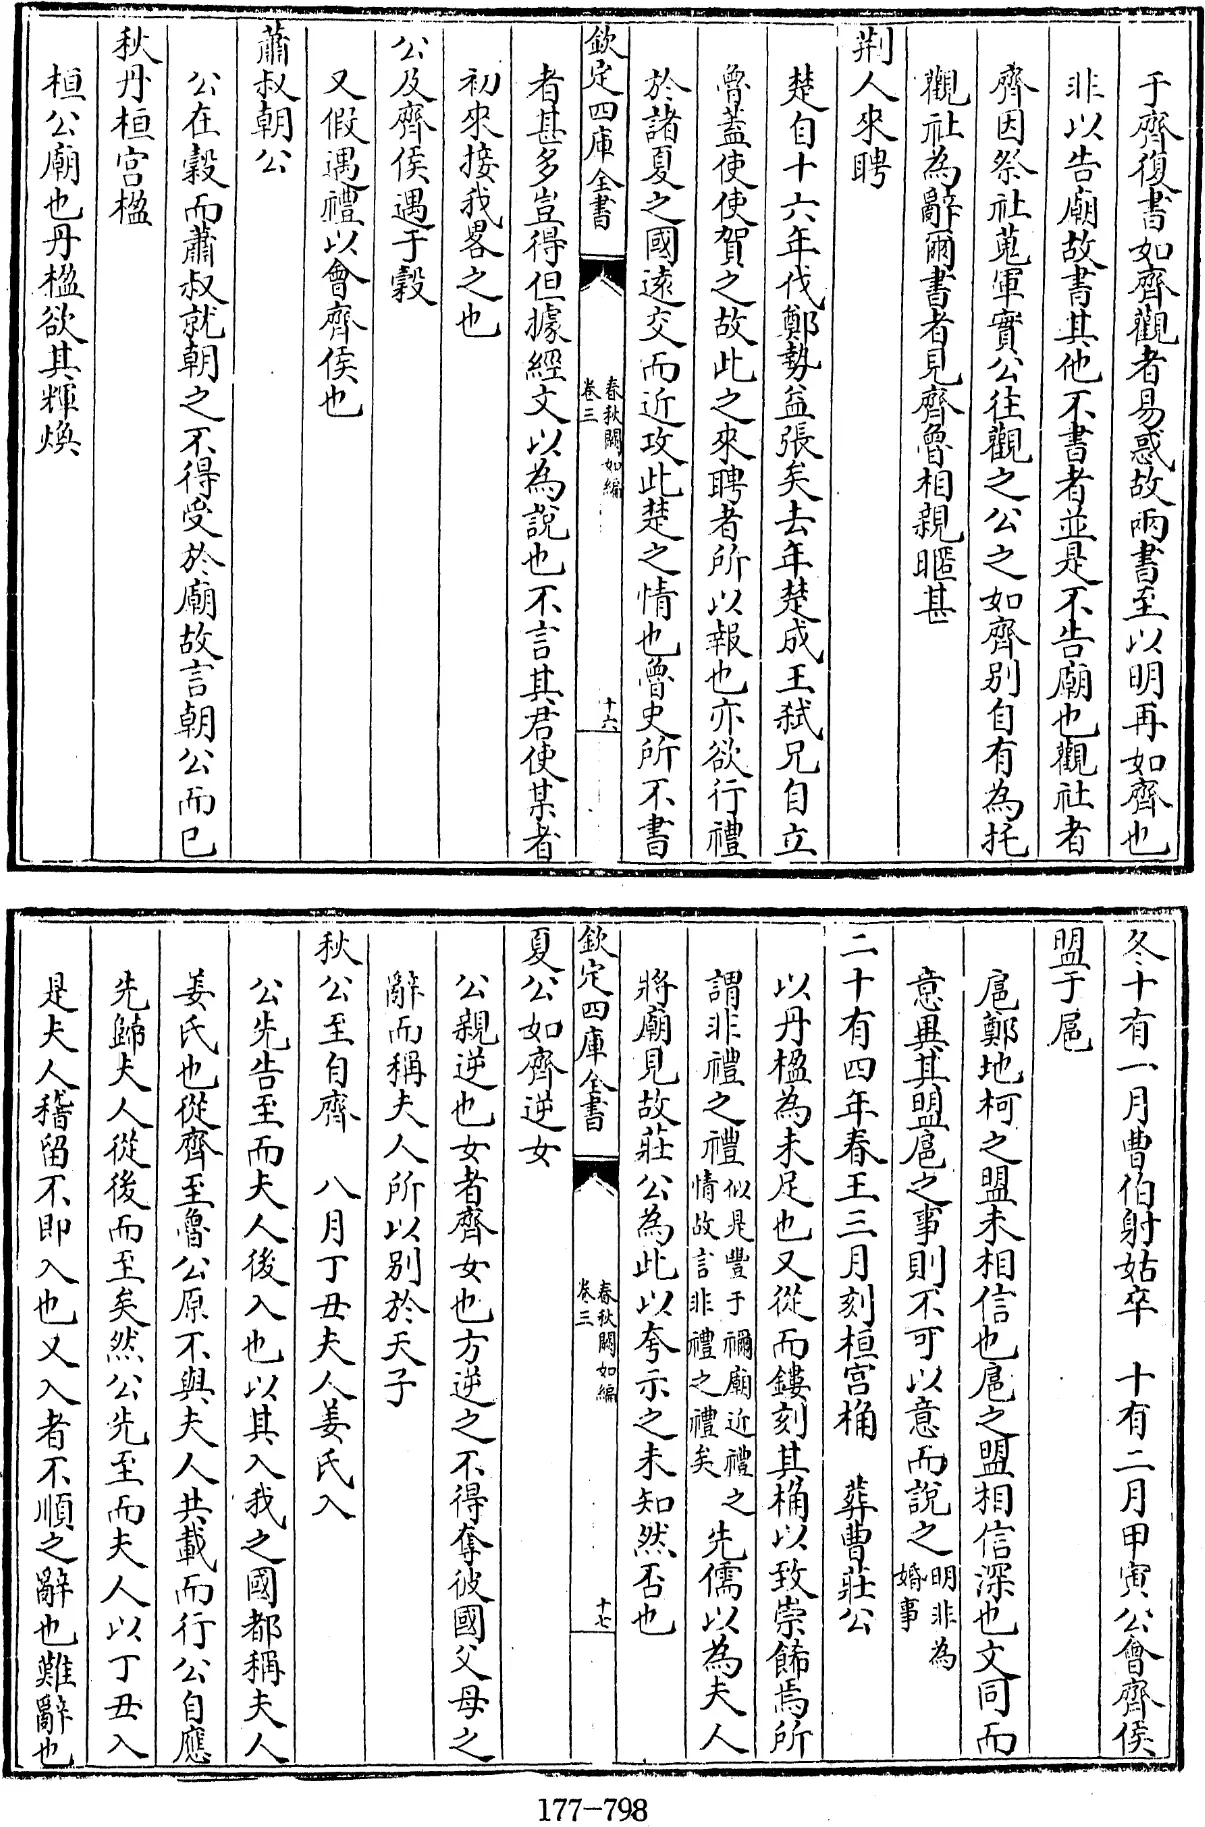 于齊復書如齊觀者易惑故兩書至以明再如齊也
非以告廟故書其他不書者並是不告廟也觀社者
齊因祭社蒐軍實公往觀之公之如齊别自有為托
觀社為辭爾書者見齊魯相親暱甚
荆人來聘
楚自十六年伐鄭勢益張矣去年楚成王弑兄自立
魯蓋使使賀之故此之來聘者所以報也亦欲行禮
於諸夏之國遠交而近攻此楚之情也魯史所不書
欽定四庫全書
春秋闕如編
卷三
十六
者甚多豈得但據經文以為說也不言其君使某者
初來接我畧之也
公及齊侯遇于穀
又假遇禮以會齊侯也
蕭叔朝公
公在穀而蕭叔就朝之不得受於廟故言朝公而已
秋丹桓宫楹
桓公廟也丹楹欲其輝煥
冬十有一月曹伯射姑卒 十有二月甲寅公會齊侯
盟于扈
扈鄭地柯之盟未相信也扈之盟相信深也文同而
意異其盟扈之事則不可以意而說之明非為婚事
二十有四年春王三月刻桓宫桷 葬曹莊公
以丹楹為未足也又從而鏤刻其桷以致崇飾焉所
謂非禮之禮似是豐于禰廟近禮之情故言非禮之禮矣先儒以為夫人
將廟見故莊公為此以夸示之未知然否也
欽定四庫全書
春秋闕如編
卷三
十七
夏公如齊逆女
公親逆也女者齊女也方逆之不得奪彼國父母之
辭而稱夫人所以别於天子
秋公至自齊 八月丁丑夫人姜氏入
公先告至而夫人後入也以其入我之國都稱夫人
姜氏也從齊至魯公原不與夫人共載而行公自應
先歸夫人從後而至矣然公先至而夫人以丁丑入
是夫人稽留不即入也又入者不順之辭也難辭也
177-798